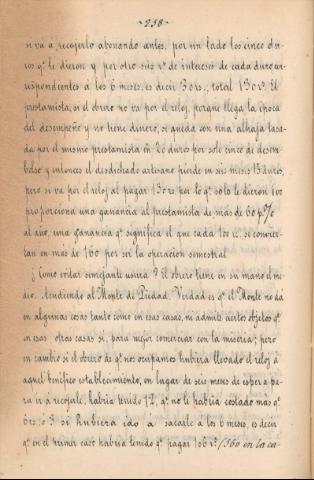 -238-
si vá á recojerlo abonando antes, por un lado los cinco du-
ros q.e le dieron y por otro sus r.s de intereses de cada duro cor-
respondientes á los 6 meses, es decir 30 rs., total 130 r.s El
prestamista, si el obrero no va por el reloj, porque llega la época
del desempeño y no tiene dinero, se queda con una alhaja tasa-
da por el mismo prestamista en 20 duros por solo cinco de desem-
bolso y entonces el desdichado artesano pierde en seis meses 15 duros;
pero si va por el reloj al pagar 130 r.s por lo q.e solo le dieron 100
proporciona una ganancia al prestamista de más de 60 p.%
al año, una ganancia q.e significa el que cada 100 rs. se convier-
tan en más de 160 por ser la operacion semestral.
¿Como evitar semejante usura? El obrero tiene en su mano el me-
dio. Atendiendo al Monte de Piedad. Verdad es q.e el Monte no dá
en algunas cosas tanto como en esas casas, ni admite ciertos objetos q.e
en esas otras casas si, para mejor comerciar con la miseria; pero
en cambio si el obrero de q.e nos ocupamos hubiera llevado el reloj á
aquel benéfico establecimiento, en lugar de seis meses de espera pa-
ra ir á recojerle, habria tenido 12, q.e no le habria costado mas q.e
6 rs. ó 3 si hubiera ido á sacarle a los 6 meses, es decir
q.e en el primer caso habria tenido q.e pagar 106 r.s (160 en la ca-